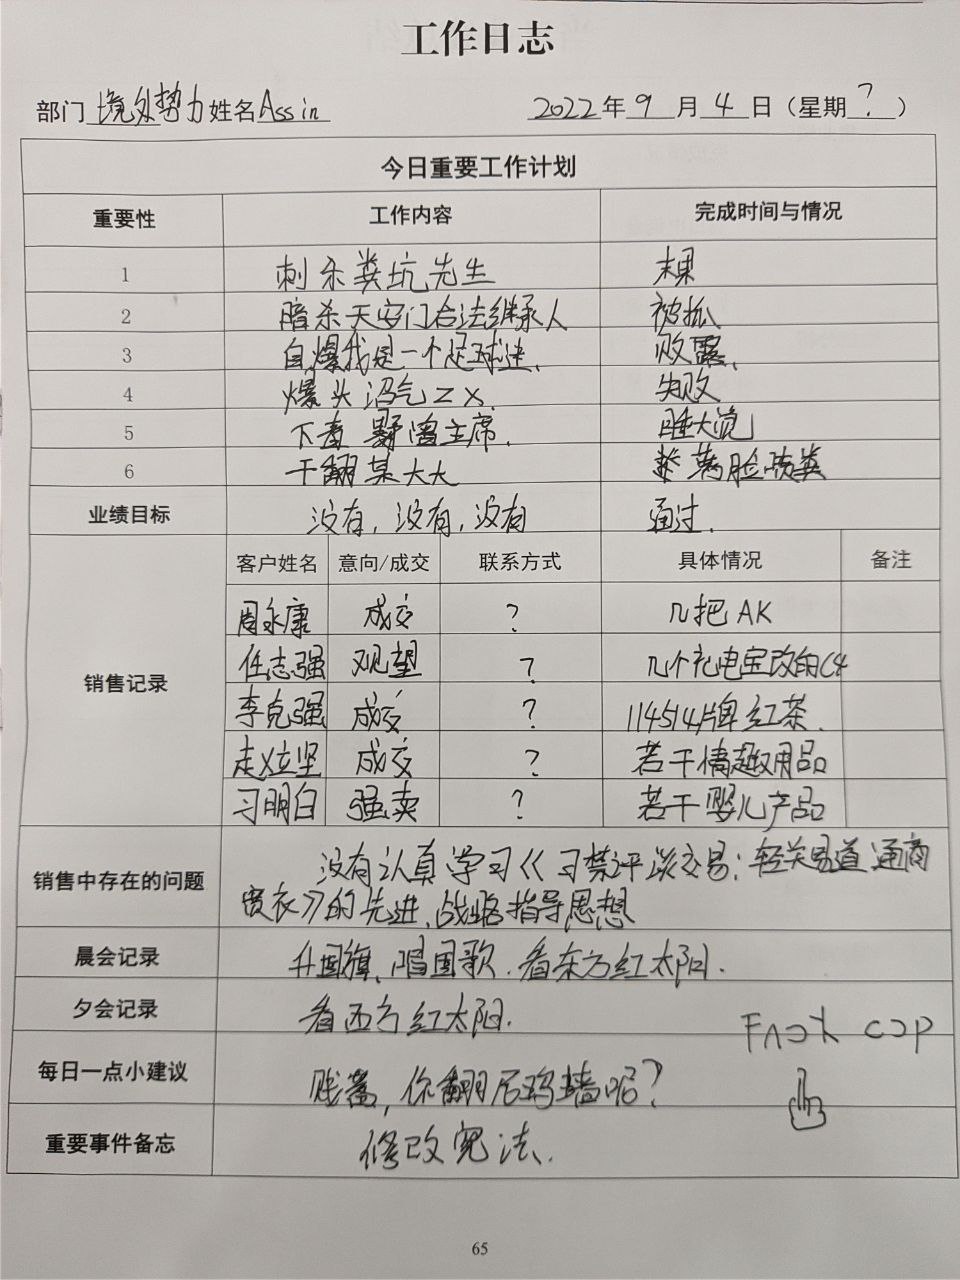 工作日志
部门 境外势力 姓名 Assin 2022年 9 月 4 日（星期 ? ）
今日重要工作计划
重要性 工作内容 完成时间与情况
1 刺杀粪坑先生 未果
2 暗杀天安门合法继承人 被抓
3 自爆我是一个足球迷. 败露.
4 爆头沼气ZX. 失败
5 下毒 野兽主席. 睡大觉
6 干翻某大大 脸喷粪
业绩目标 没有, 没有, 没有 通过.
销售记录
客户姓名 意向/成交 联系方式 具体情况 备注
周永康 成交 ? 几把AK
任志强 观望 ? 几个充电宝改的C4
李克强 成交 ? 114514牌红茶.
赵立坚 成交 ? 若干情趣用品
习明白 强卖 ? 若干婴儿产品
销售中存在的问题 没有认真学习《习禁评谈交易: 轻关易道通商
宽衣》的先进, 战略指导思想
晨会记录 升国旗, 唱国歌. 看东方红太阳.
夕会记录 看西方红太阳.
每日一点小建议 贱畜, 你翻尼玛墙呢?
重要事件备忘 修改宪法.
65